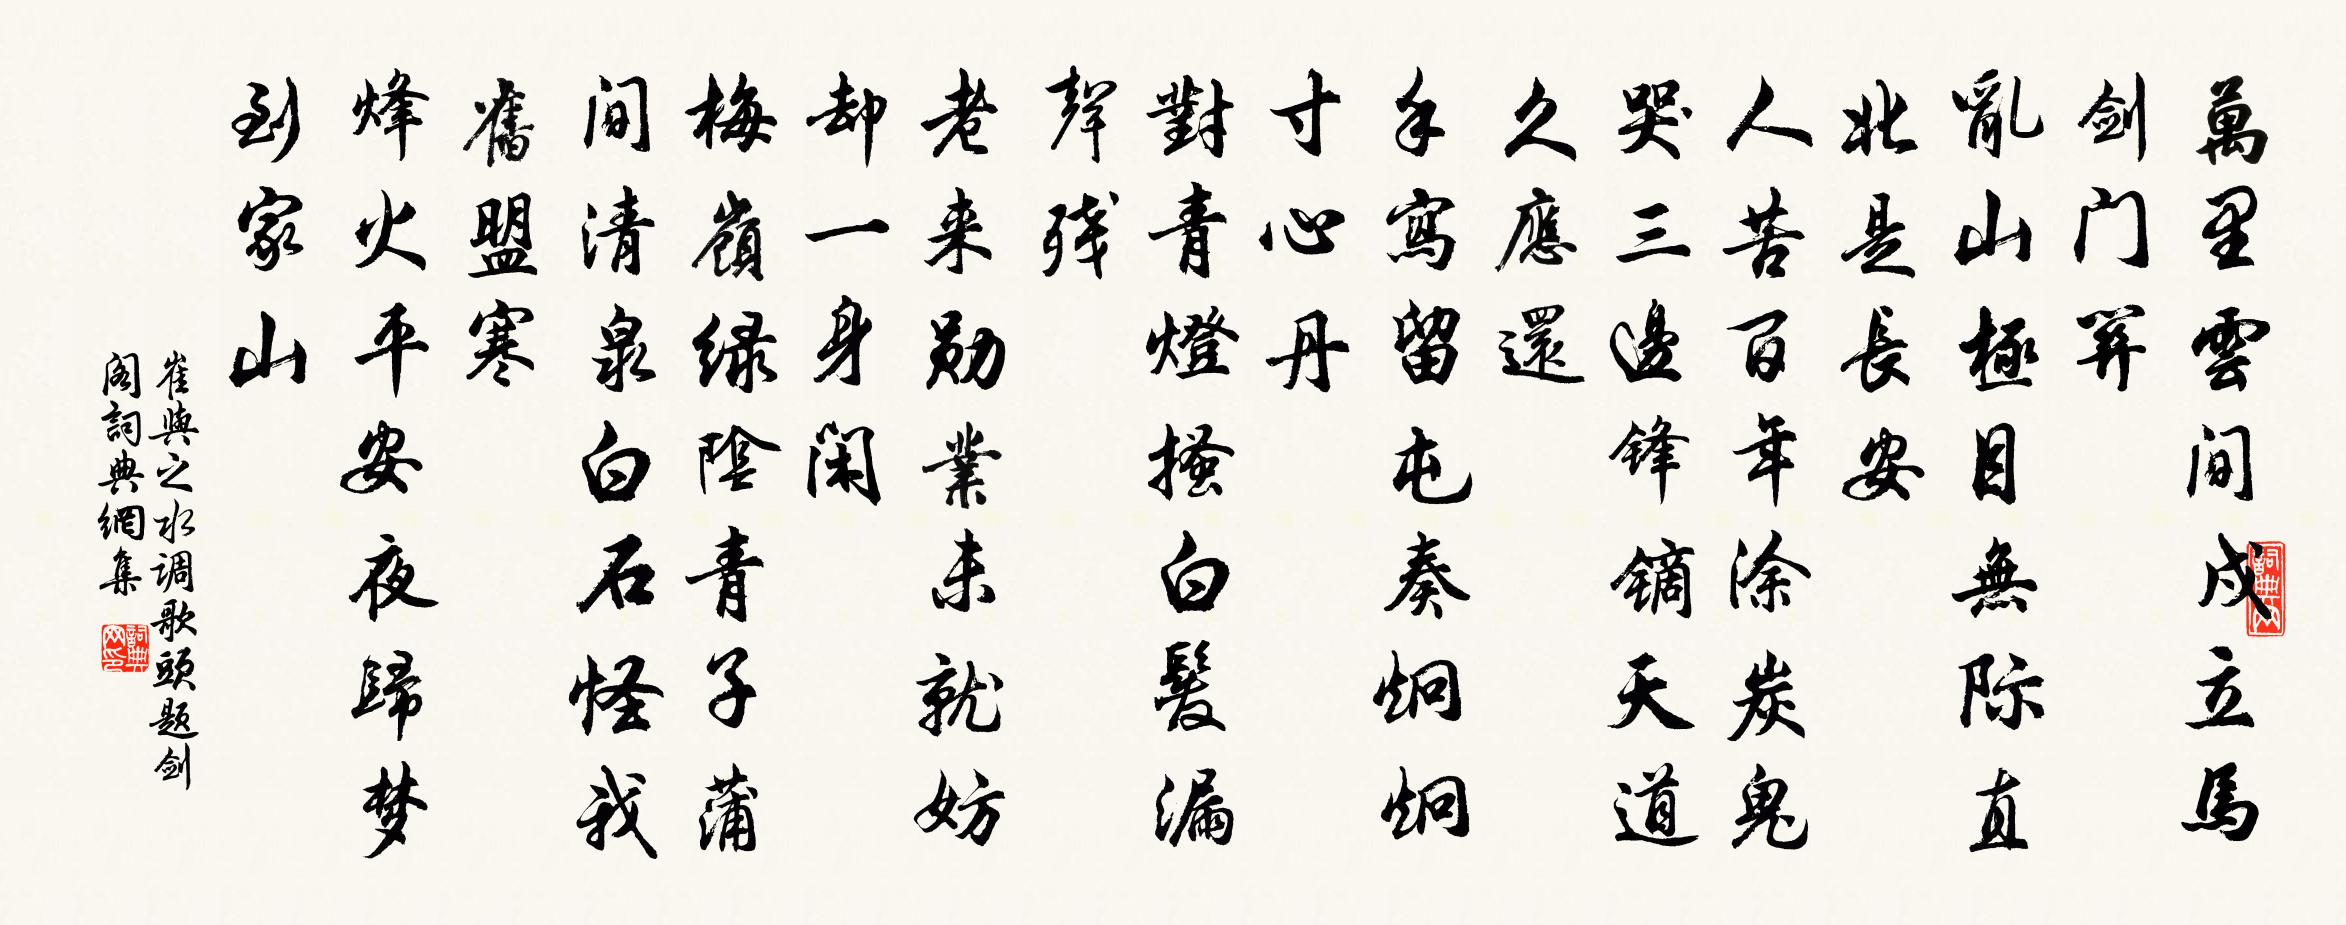 萬里雲間戍立馬
剑门关
亂山極目無际直
北是長安
人苦百年涂炭鬼
哭三邊锋镝天道
久應還
手寫留屯奏炯炯
寸心丹
對青燈搔白髮漏
聲残
老来勋業未就妨
却一身闲
梅嶺绿陰青子蒲
间清泉白石怪我
舊盟寒
烽火平安夜歸梦
到家山
崔與之水调歌頭题剑
阁詞典網集
詞典网
詞典网印